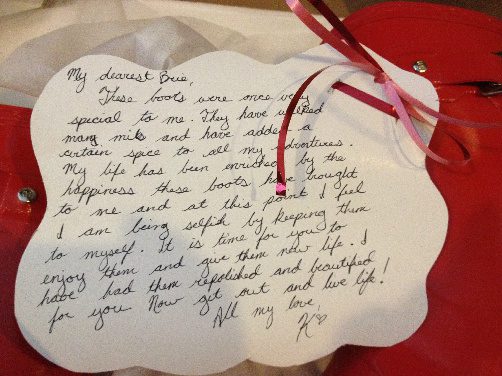 My dearest Brie,
These boots were once very
special to me. They have walked
many miles and have added a
certain spice to all my adventures.
My life has been enriched by the
happiness these boots have brought
to me and at this point I feel
I am being selfish by keeping them
to myself. It is time for you to
enjoy them and give them new life. I
have had them repolished and beautified
for you Now get out and live life!
All my love,
K